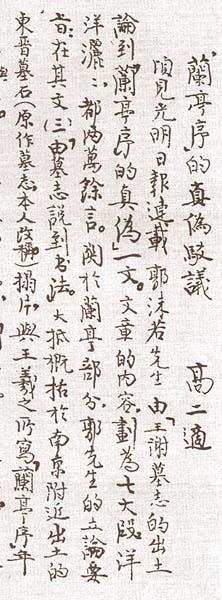 「蘭亭序」的真偽駁議　高二適
頃見光明日報連載郭沫若先生「由王謝墓志的出土
論到「蘭亭序」的真偽」一文。文章的內容,劃為七大段,洋
洋灑灑,都兩萬餘言。関於蘭亭部分,郭先生的立論要
旨:在其文(三)「由墓志說到書法」。大抵概括於南京附近出土的
東晉墓石(原作墓志,本人改稱)搨片,與王羲之所寫「蘭亭序」年